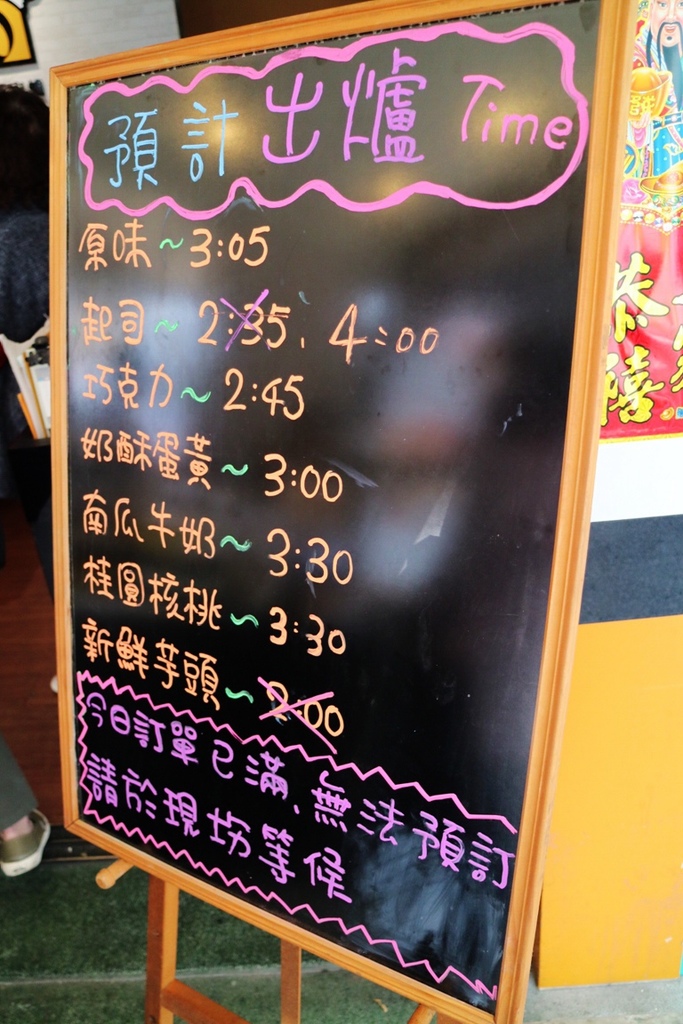 預計出爐 Time
原味~3:05
起司~2:35、4:00
巧克力~2:45
奶酥蛋黃~3:00
南瓜牛奶~3:30
桂圓核桃~3:30
新鮮芋頭~2:00
今日訂單已滿、無法預訂
請於現場等候
恭
禧